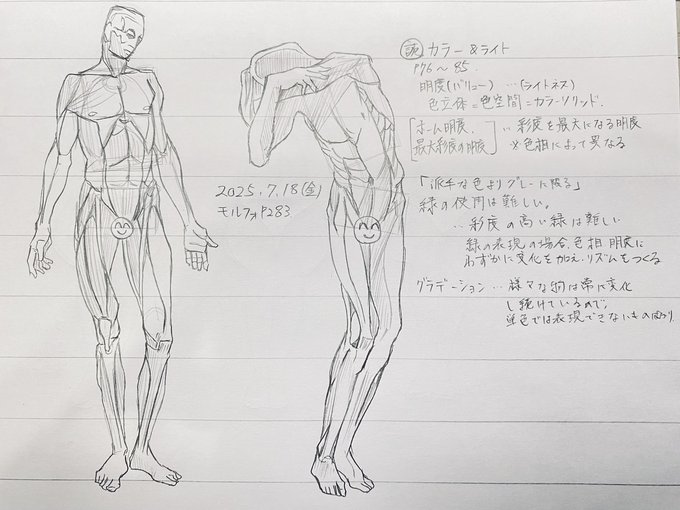 読 カラー&ライト
P76～85.
明度(バリュー) …(ライトネス)
色立体=色空間=カラーソリッド.
[ホーム明度.
最大彩度の明度] ∴彩度を最大になる明度
※色相によって異なる
2025.7.18(金)
モルフォP283
「派手な色よりグレーに限る」
緑の使用は難しい。
∴彩度の高い緑は難しい
緑の表現の場合、色相 明度に
わずかに変化を加え.リズムをつくる
グラデーション…様々な物は常に変化
し続けているので、
単色では表現できないもの